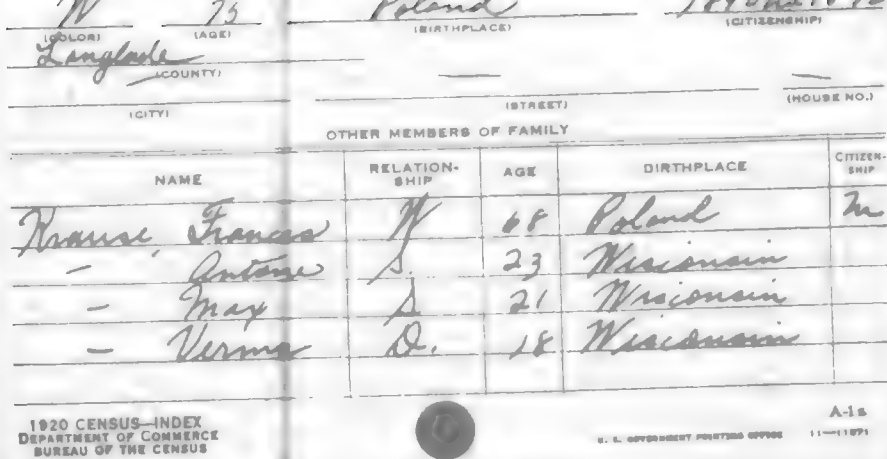 W 75 Poland
(COLOR) (AGE) (BIRTHPLACE) (CITIZENSHIP)
Langlade
(COUNTY)
(CITY) (STREET) (HOUSE NO.)
OTHER MEMBERS OF FAMILY
NAME RELATION-SHIP AGE BIRTHPLACE CITIZEN-SHIP
Krause, Frances W 68 Poland
— Antone S. 23 Wisconsin
— Max S. 21 Wisconsin
— Verma D. 18 Wisconsin
1920 CENSUS—INDEX A-1a
DEPARTMENT OF COMMERCE U. S. GOVERNMENT PRINTING OFFICE
BUREAU OF THE CENSUS